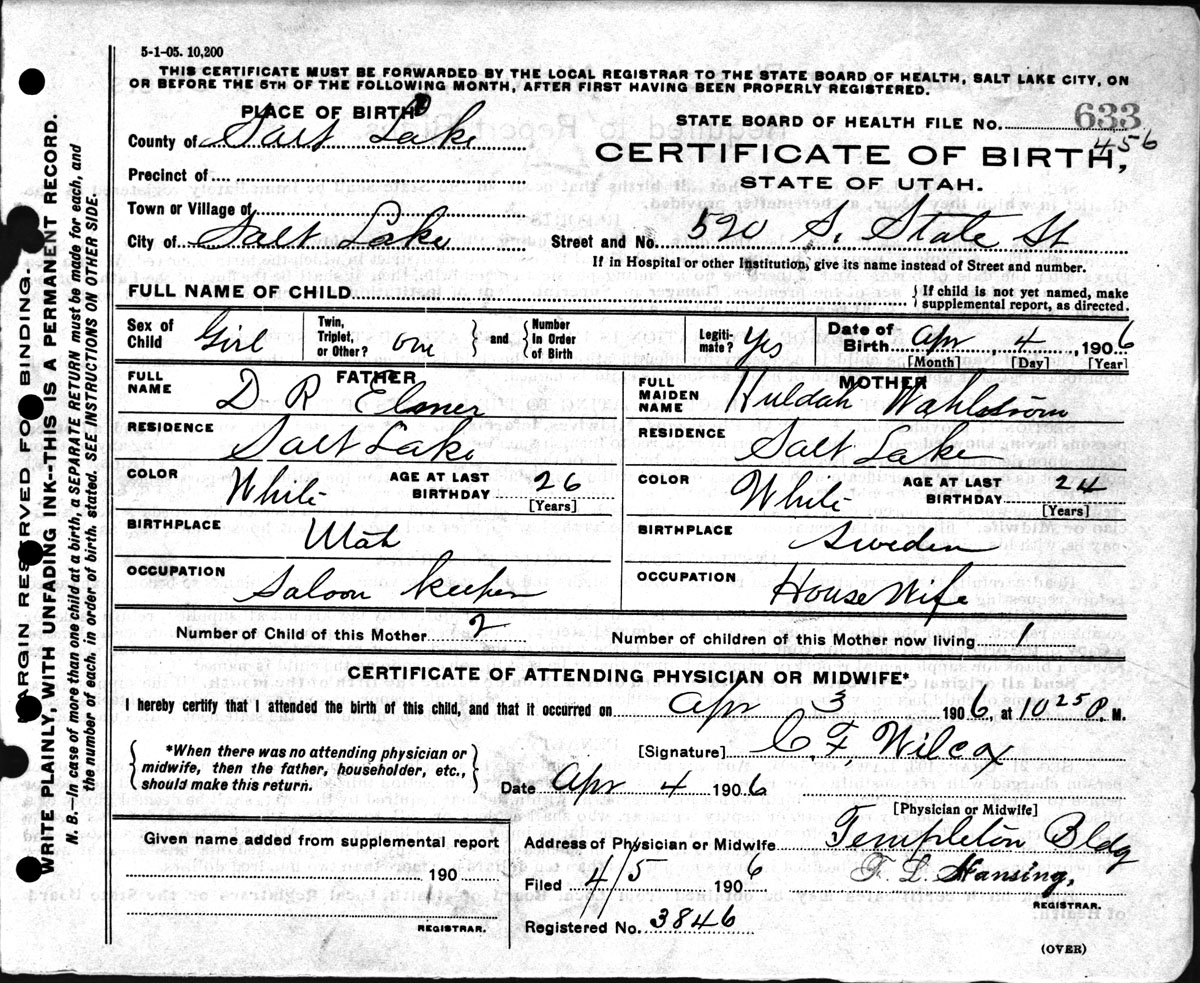 5-1-05. 10,200
THIS CERTIFICATE MUST BE FORWARDED BY THE LOCAL REGISTRAR TO THE STATE BOARD OF HEALTH, SALT LAKE CITY, ON
OR BEFORE THE 5TH OF THE FOLLOWING MONTH, AFTER FIRST HAVING BEEN PROPERLY REGISTERED.
PLACE OF BIRTH
STATE BOARD OF HEALTH FILE No. 633
456
County of Salt Lake
CERTIFICATE OF BIRTH,
Precinct of
STATE OF UTAH.
Town or Village of
City of Salt Lake Street and No. 520 S. State St
If in Hospital or other Institution, give its name instead of Street and number.
FULL NAME OF CHILD { If child is not yet named, make
supplemental report, as directed.
Sex of Child Girl Twin, Triplet, or Other? one } and { Number In Order of Birth Legiti-mate? Yes Date of Birth Apr, 4, 1906
[Month] [Day] [Year]
FATHER
FULL NAME D R Elmer
RESIDENCE Salt Lake
COLOR White AGE AT LAST BIRTHDAY 26
[Years]
BIRTHPLACE Utah
OCCUPATION Saloon Keeper
MOTHER
FULL MAIDEN NAME Huldah Wahlstrom
RESIDENCE Salt Lake
COLOR White AGE AT LAST BIRTHDAY 24
[Years]
BIRTHPLACE Sweden
OCCUPATION House Wife
Number of Child of this Mother 2 Number of children of this Mother now living 1
CERTIFICATE OF ATTENDING PHYSICIAN OR MIDWIFE*
I hereby certify that I attended the birth of this child, and that it occurred on Apr 3 1906, at 10 25 P. M.
{ *When there was no attending physician or
midwife, then the father, householder, etc.,
should make this return. }
[Signature] C. F. Wilcox
Date Apr 4 1906
[Physician or Midwife]
Given name added from supplemental report
190
REGISTRAR.
Address of Physician or Midwife Templeton Bldg
Filed 4/5 1906 F. L. Hansing,
REGISTRAR.
Registered No. 3846
(OVER)
MARGIN RESERVED FOR BINDING.
WRITE PLAINLY, WITH UNFADING INK--THIS IS A PERMANENT RECORD.
N. B.—In case of more than one child at a birth, a SEPARATE RETURN must be made for each, and
the number of each, in order of birth, stated. SEE INSTRUCTIONS ON OTHER SIDE.